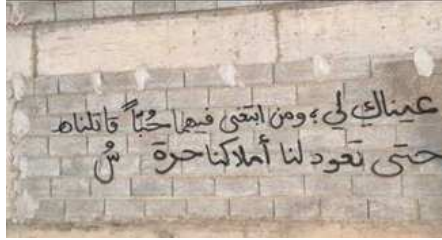 عيناكِ لي ؛ ومن ابتغى فيهما حُبّاً قاتلناه
حتى تعود لنا أملاكنا حرة سُ